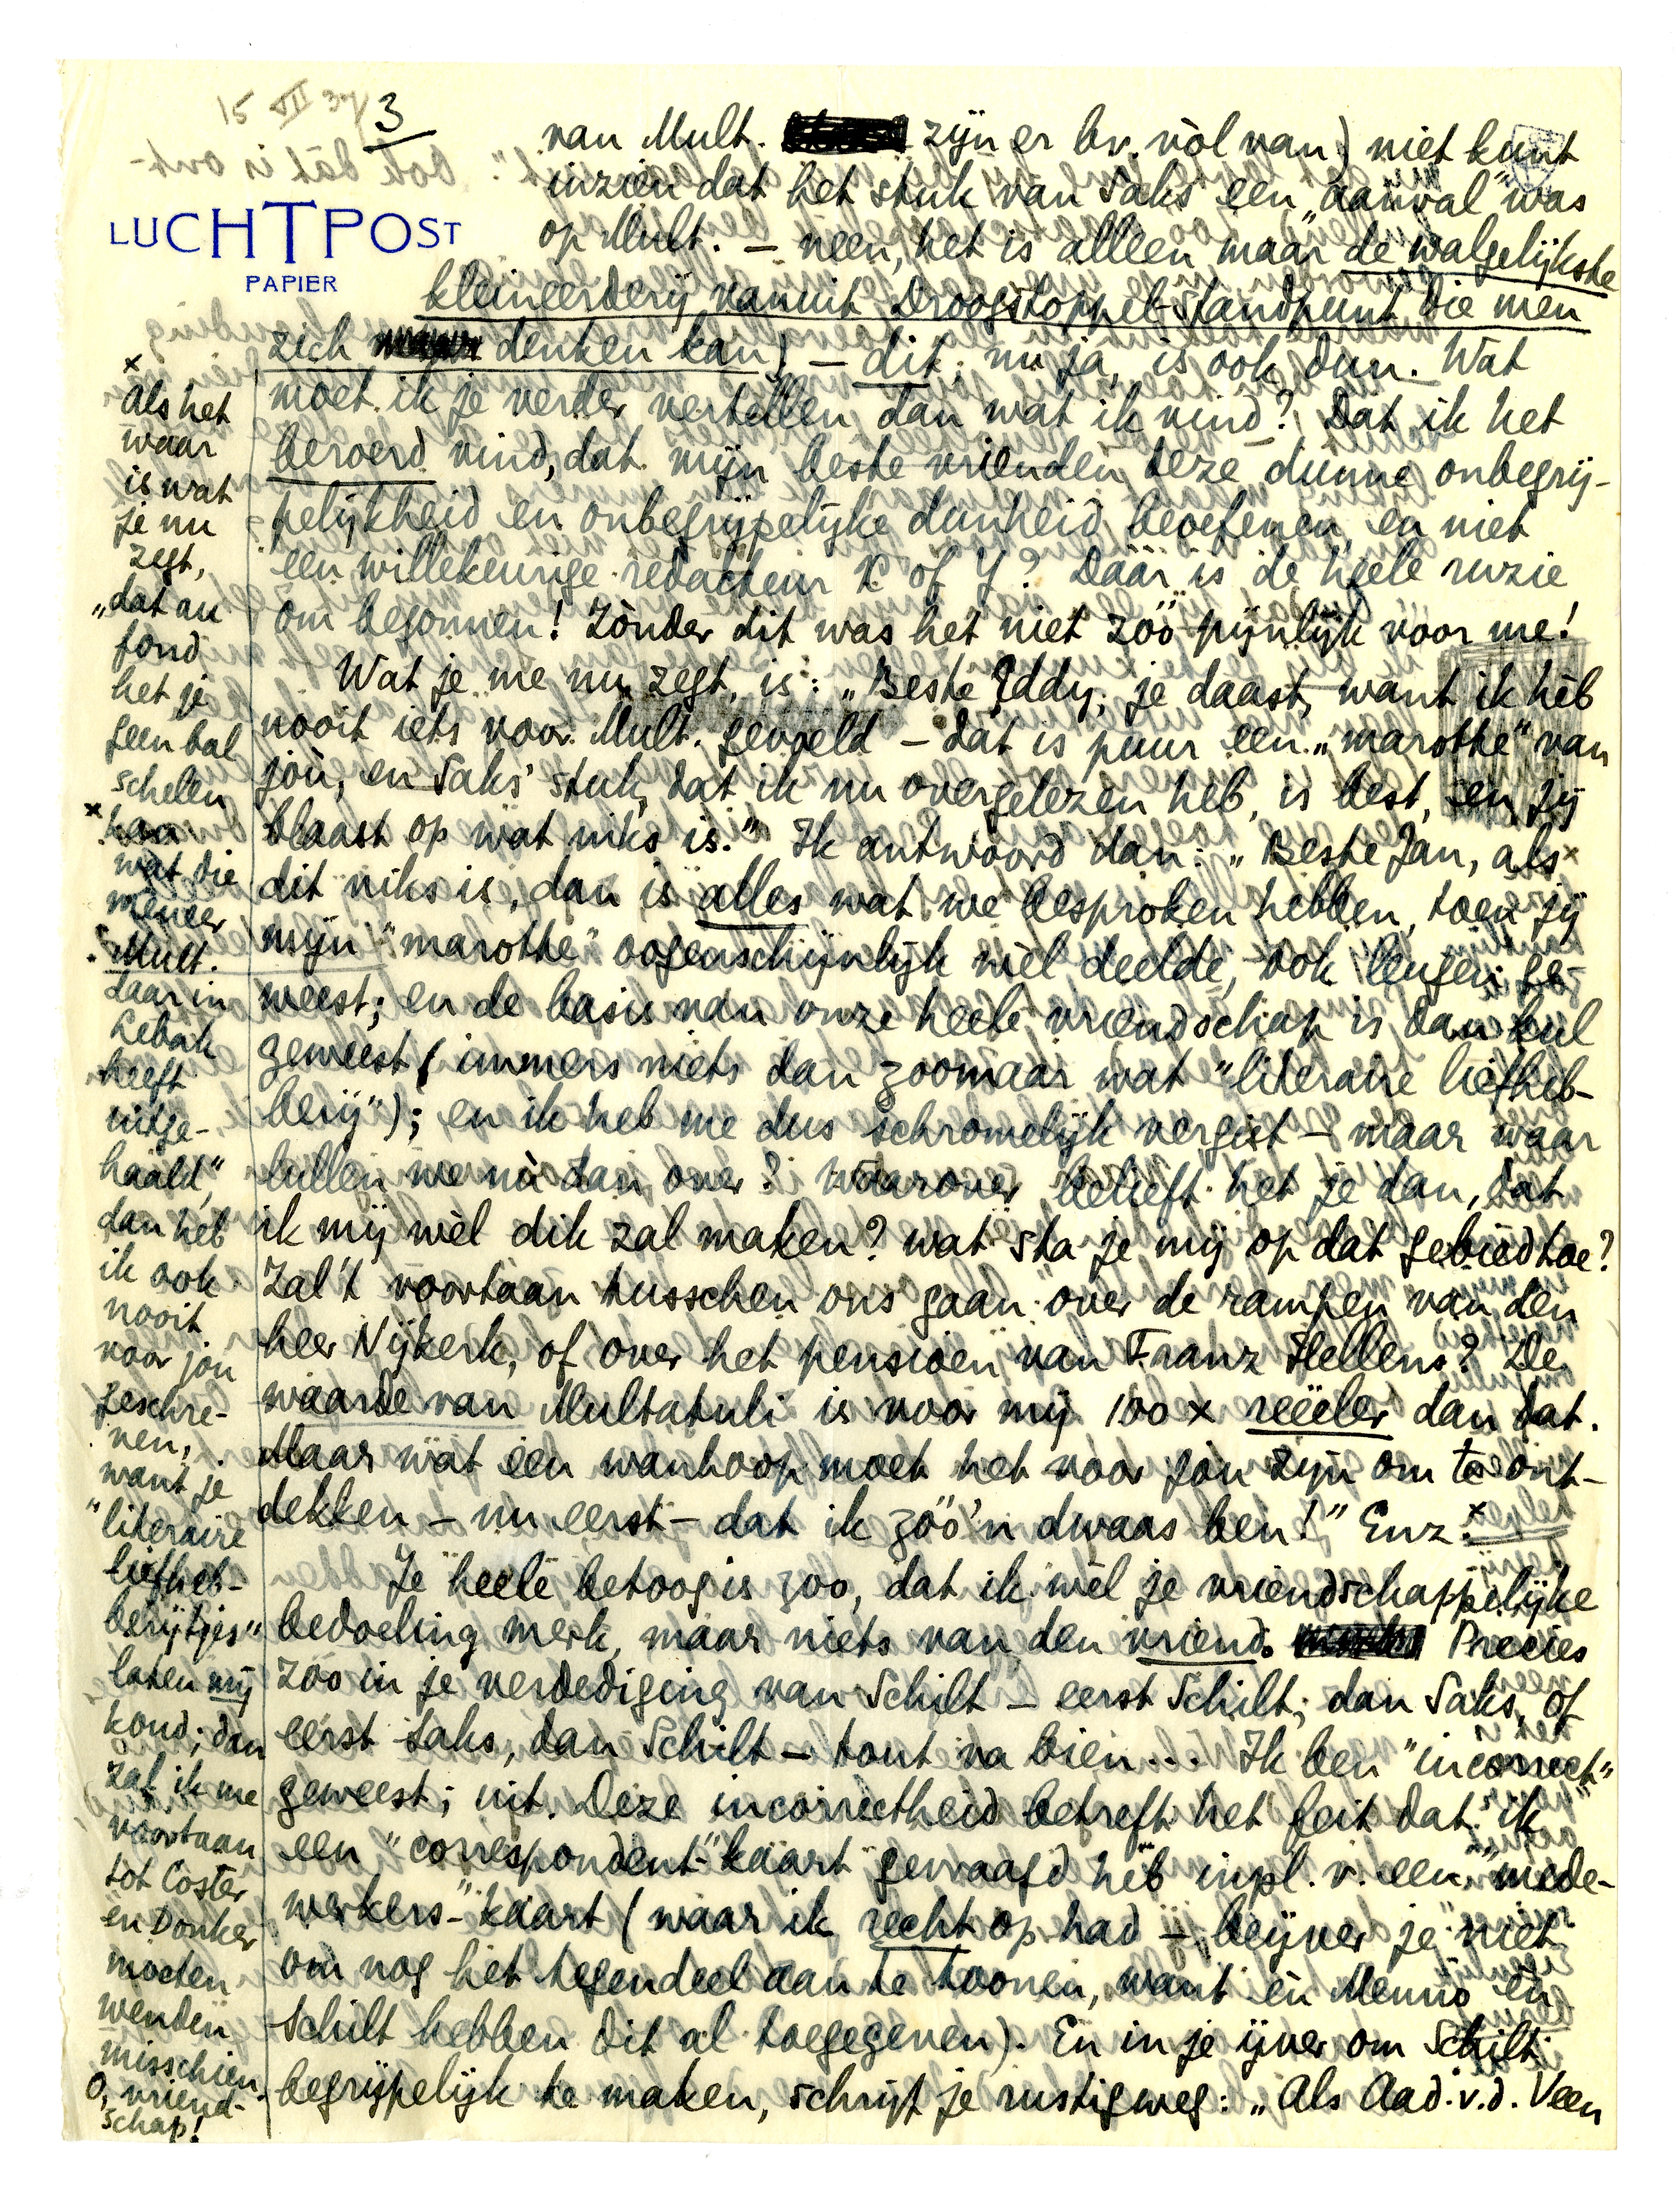 15 XII 37
3
LUCHTPOST
PAPIER
van Mult. zijn er bv. vòl van) niet kunt
inzien dat het stuk van Saks een „aanval” was
op Mult. — neen, het is alleen maar de walgelijkste
kleineerderij vanuit Droogstoppel-standpunt die men
zich denken kan) — dit, nu ja, is ook dun. Wat
moet ik je verder vertellen dan wat ik vind? Dat ik het
beroerd vind, dat mijn beste vrienden deze dunne onbegrij-
pelijkheid en onbegrijpelijke dunheid beoefenen, en niet
een willekeurige redacteur X of Y? Dáár is de heele ruzie
om begonnen! Zònder dit was het niet zóó pijnlijk voor me!
Wat je me nu zegt, is: „Beste Eddy, je daast, want ik hèb
nooit iets voor Mult. gevoeld — dat is puur een „marotte” van
jòu, en Saks' stuk, dat ik nu overgelezen heb, is best, en jij
blaast op wat niks is.” Ik antwoord dan: „Beste Jan, als x
dit niks is, dan is alles wat we besproken hebben, toen jij
mijn “marotte” oogenschijnlijk wèl deelde, ook leugen ge-
weest; en de basis van onze heele vriendschap is dan kul
geweest (immers niets dan zoomaar wat “literaire liefheb-
berij”); en ik heb me dus schromelijk vergist — maar waar
lullen we nù dan over? Waarover belieft het je dan, dat
ik mij wèl dik zal maken? wat sta je mij op dat gebied toe?
Zal 't voortaan tusschen ons gaan over de rampen van den
heer Nijkerk, of over het pensioen van Franz Hellens? De
waarde van Multatuli is voor mij 100 x reëeler dan dat.
Maar wat een wanhoop moet het voor jou zijn om te ont-
dekken — nu eerst — dat ik zóó'n dwaas ben!” Enz. x
Je heele betoog is zoo, dat ik wèl je vriendschappelijke
bedoeling merk, maar niets van den vriend. Precies
zoo in je verdediging van Schilt — eerst Schilt, dan Saks, of
eerst Saks, dan Schilt — tout va bien... Ik ben “incorrect”
geweest; uit. Deze incorrectheid betreft het feit dat ik
een “correspondent-”kaart gevraagd heb inpl. v. een “mede-
werkers-”kaart (waar ik recht op had — beijver je niet
om nog het tegendeel aan te toonen, want èn Menno èn
Schilt hebben dit al toegegeven). En in je ijver om Schilt
begrijpelijk te maken, schrijf je rustigweg: „Als Aad. v.d. Veen
x
als het
waar
is wat
je nu
zegt,
„dat au
fond
het je
geen bal
schelen
x
wat die
meneer
Mult.
daar in
Lebak
heeft
uitge-
haald”,
dan heb
ik ook
nooit
voor jou
geschre-
ven,
want je
“literaire
liefheb-
berijtjes”
laten mij
koud; dan
zal ik me
voortaan
tot Coster
en Donker
moeten
wenden
misschien.
O, vriend-
schap!